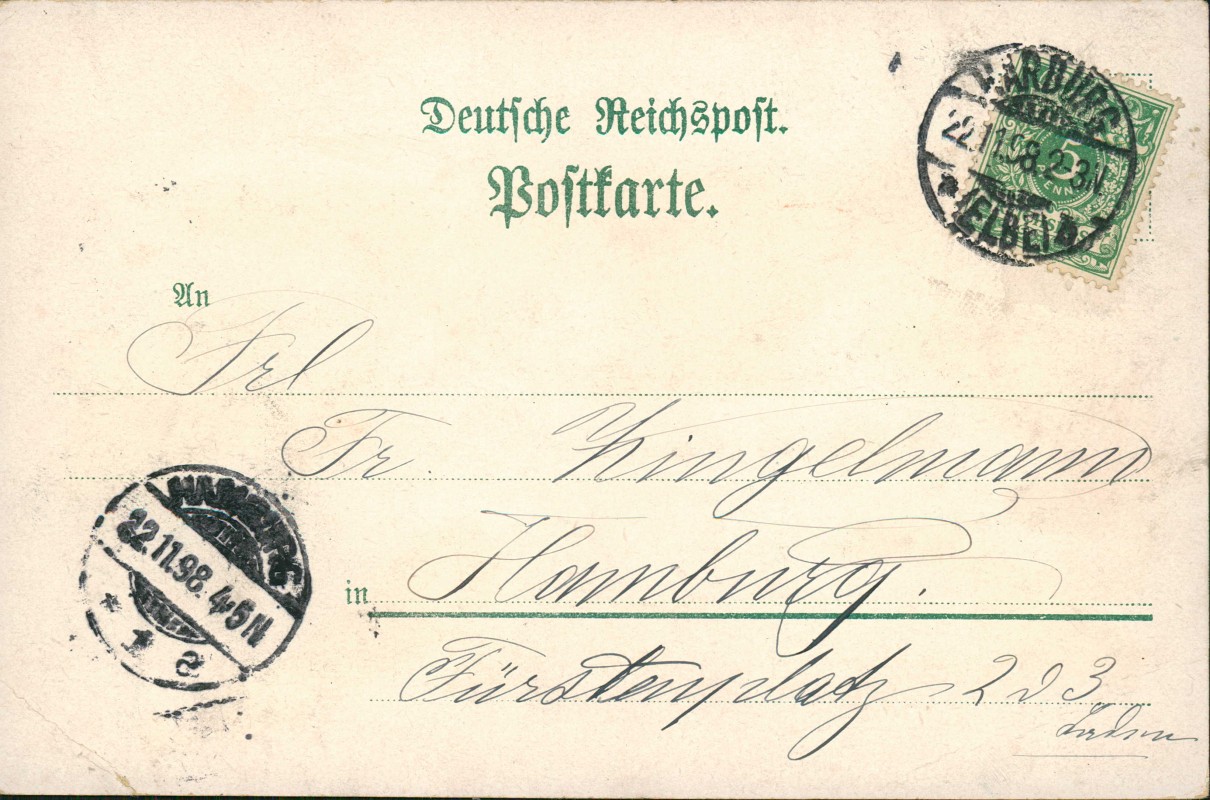 Deutsche Reichspost.
Postkarte.
HARBURG
22.11.98.2-3N
(ELBE)
5
PFENNIG
An
Frl
Fr. Kingelmann
HAMBURG
22.11.98.4-5N
* 1 *
a
in Hamburg.
Fürstenplatz 2 d 3
Laden